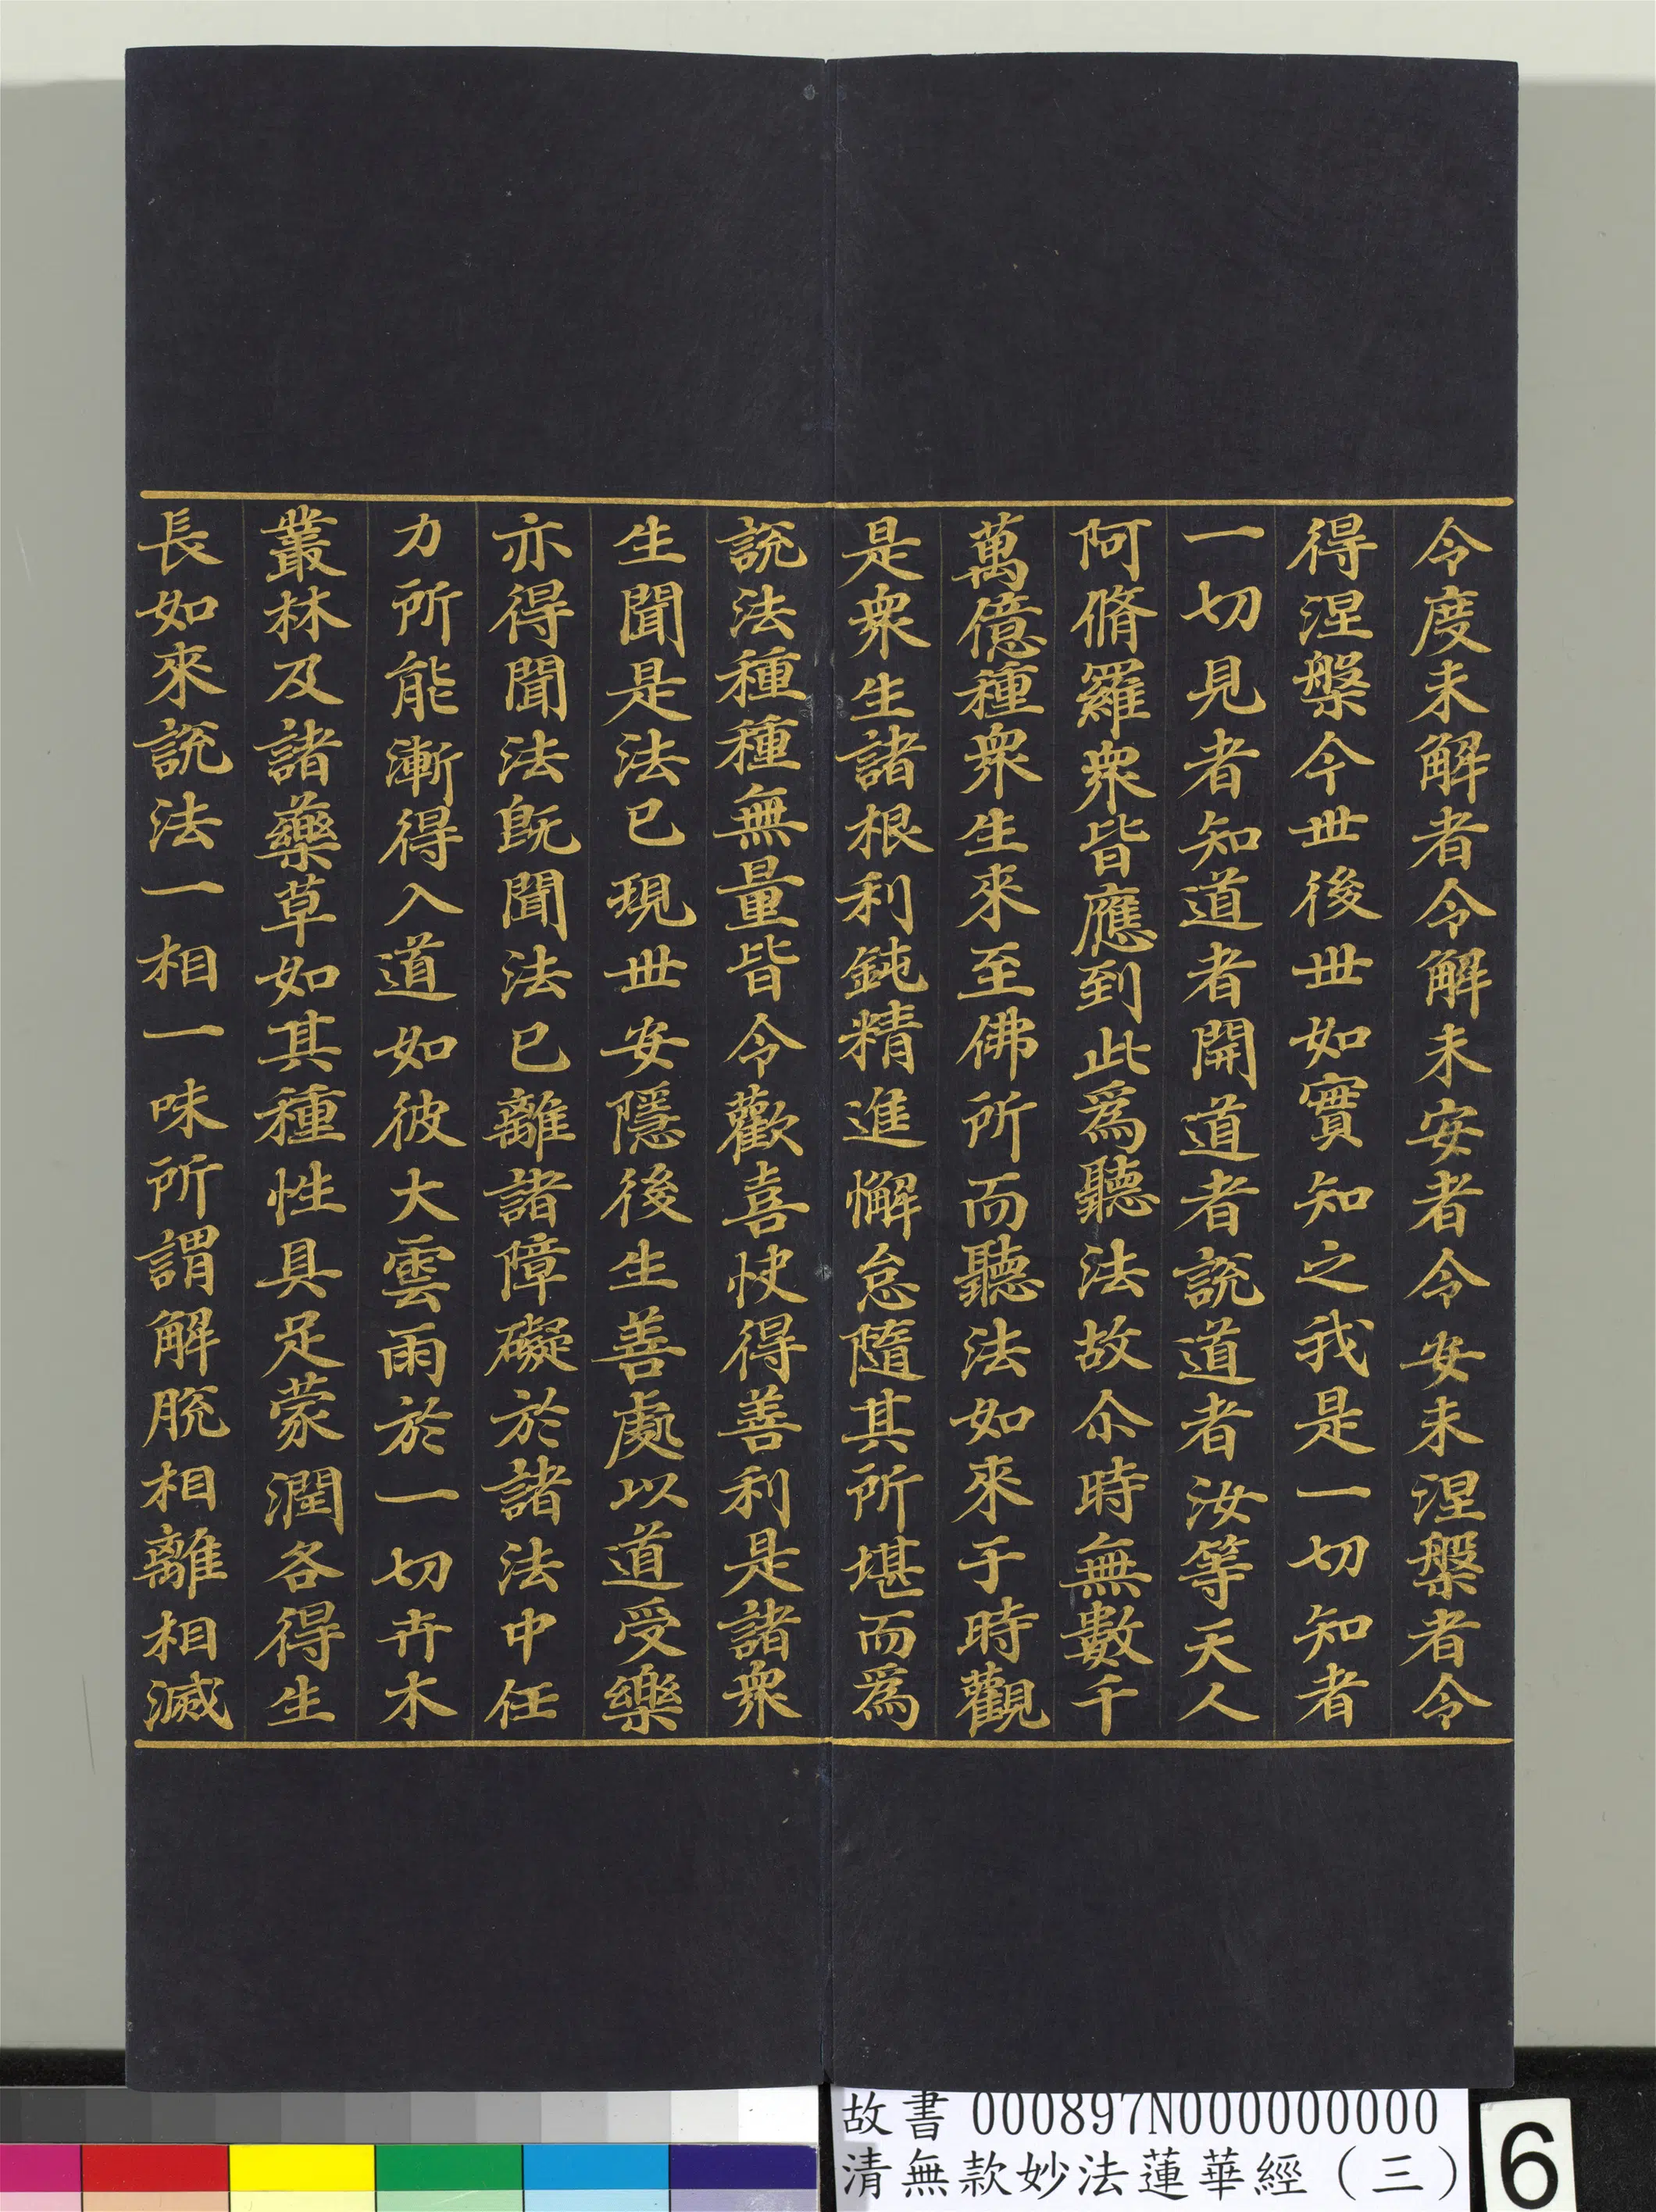 令度未解者令解未安者令安未涅槃者令
得涅槃今世後世如實知之我是一切知者
一切見者知道者開道者說道者汝等天人
阿脩羅衆皆應到此爲聽法故尒時無數千
萬億種衆生來至佛所而聽法如來于時觀
是衆生諸根利鈍精進懈怠隨其所堪而爲
說法種種無量皆令歡喜快得善利是諸衆
生聞是法已現世安隱後生善處以道受樂
亦得聞法旣聞法已離諸障礙於諸法中任
力所能漸得入道如彼大雲雨於一切卉木
叢林及諸藥草如其種性具足蒙潤各得生
長如來說法一相一味所謂解脫相離相滅
故書 000897N000000000
清無款妙法蓮華經（三）
6